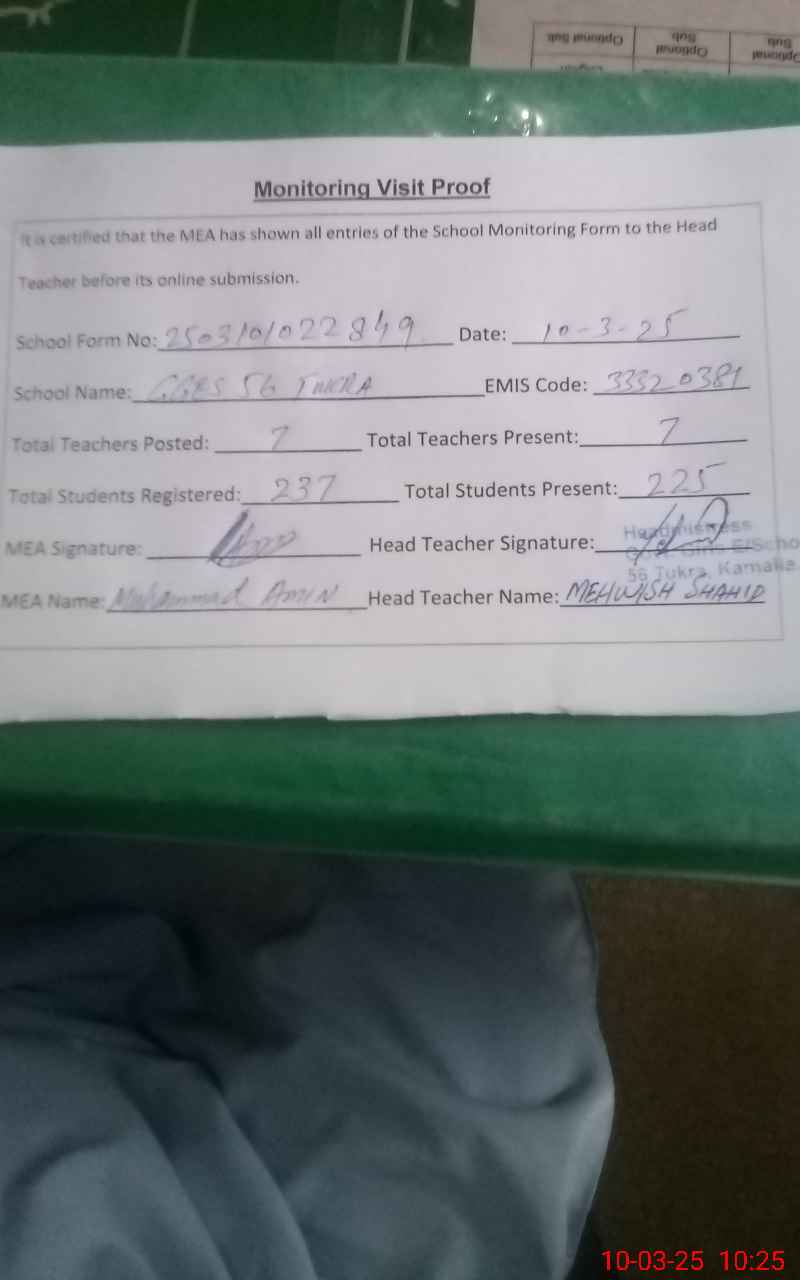 Optional Sub
Optional Sub
Optional Sub
Monitoring Visit Proof
It is certified that the MEA has shown all entries of the School Monitoring Form to the Head
Teacher before its online submission.
School Form No: 2503101022849 Date: 10-3-25
School Name: GGES 56 TUKRA EMIS Code: 33320381
Total Teachers Posted: 7 Total Teachers Present: 7
Total Students Registered: 237 Total Students Present: 225
MEA Signature: Head Teacher Signature:
Headmistress
56 Tukra, Kamalia
MEA Name: Muhammad AMIN Head Teacher Name: MEHWISH SHAHID
10-03-25 10:25